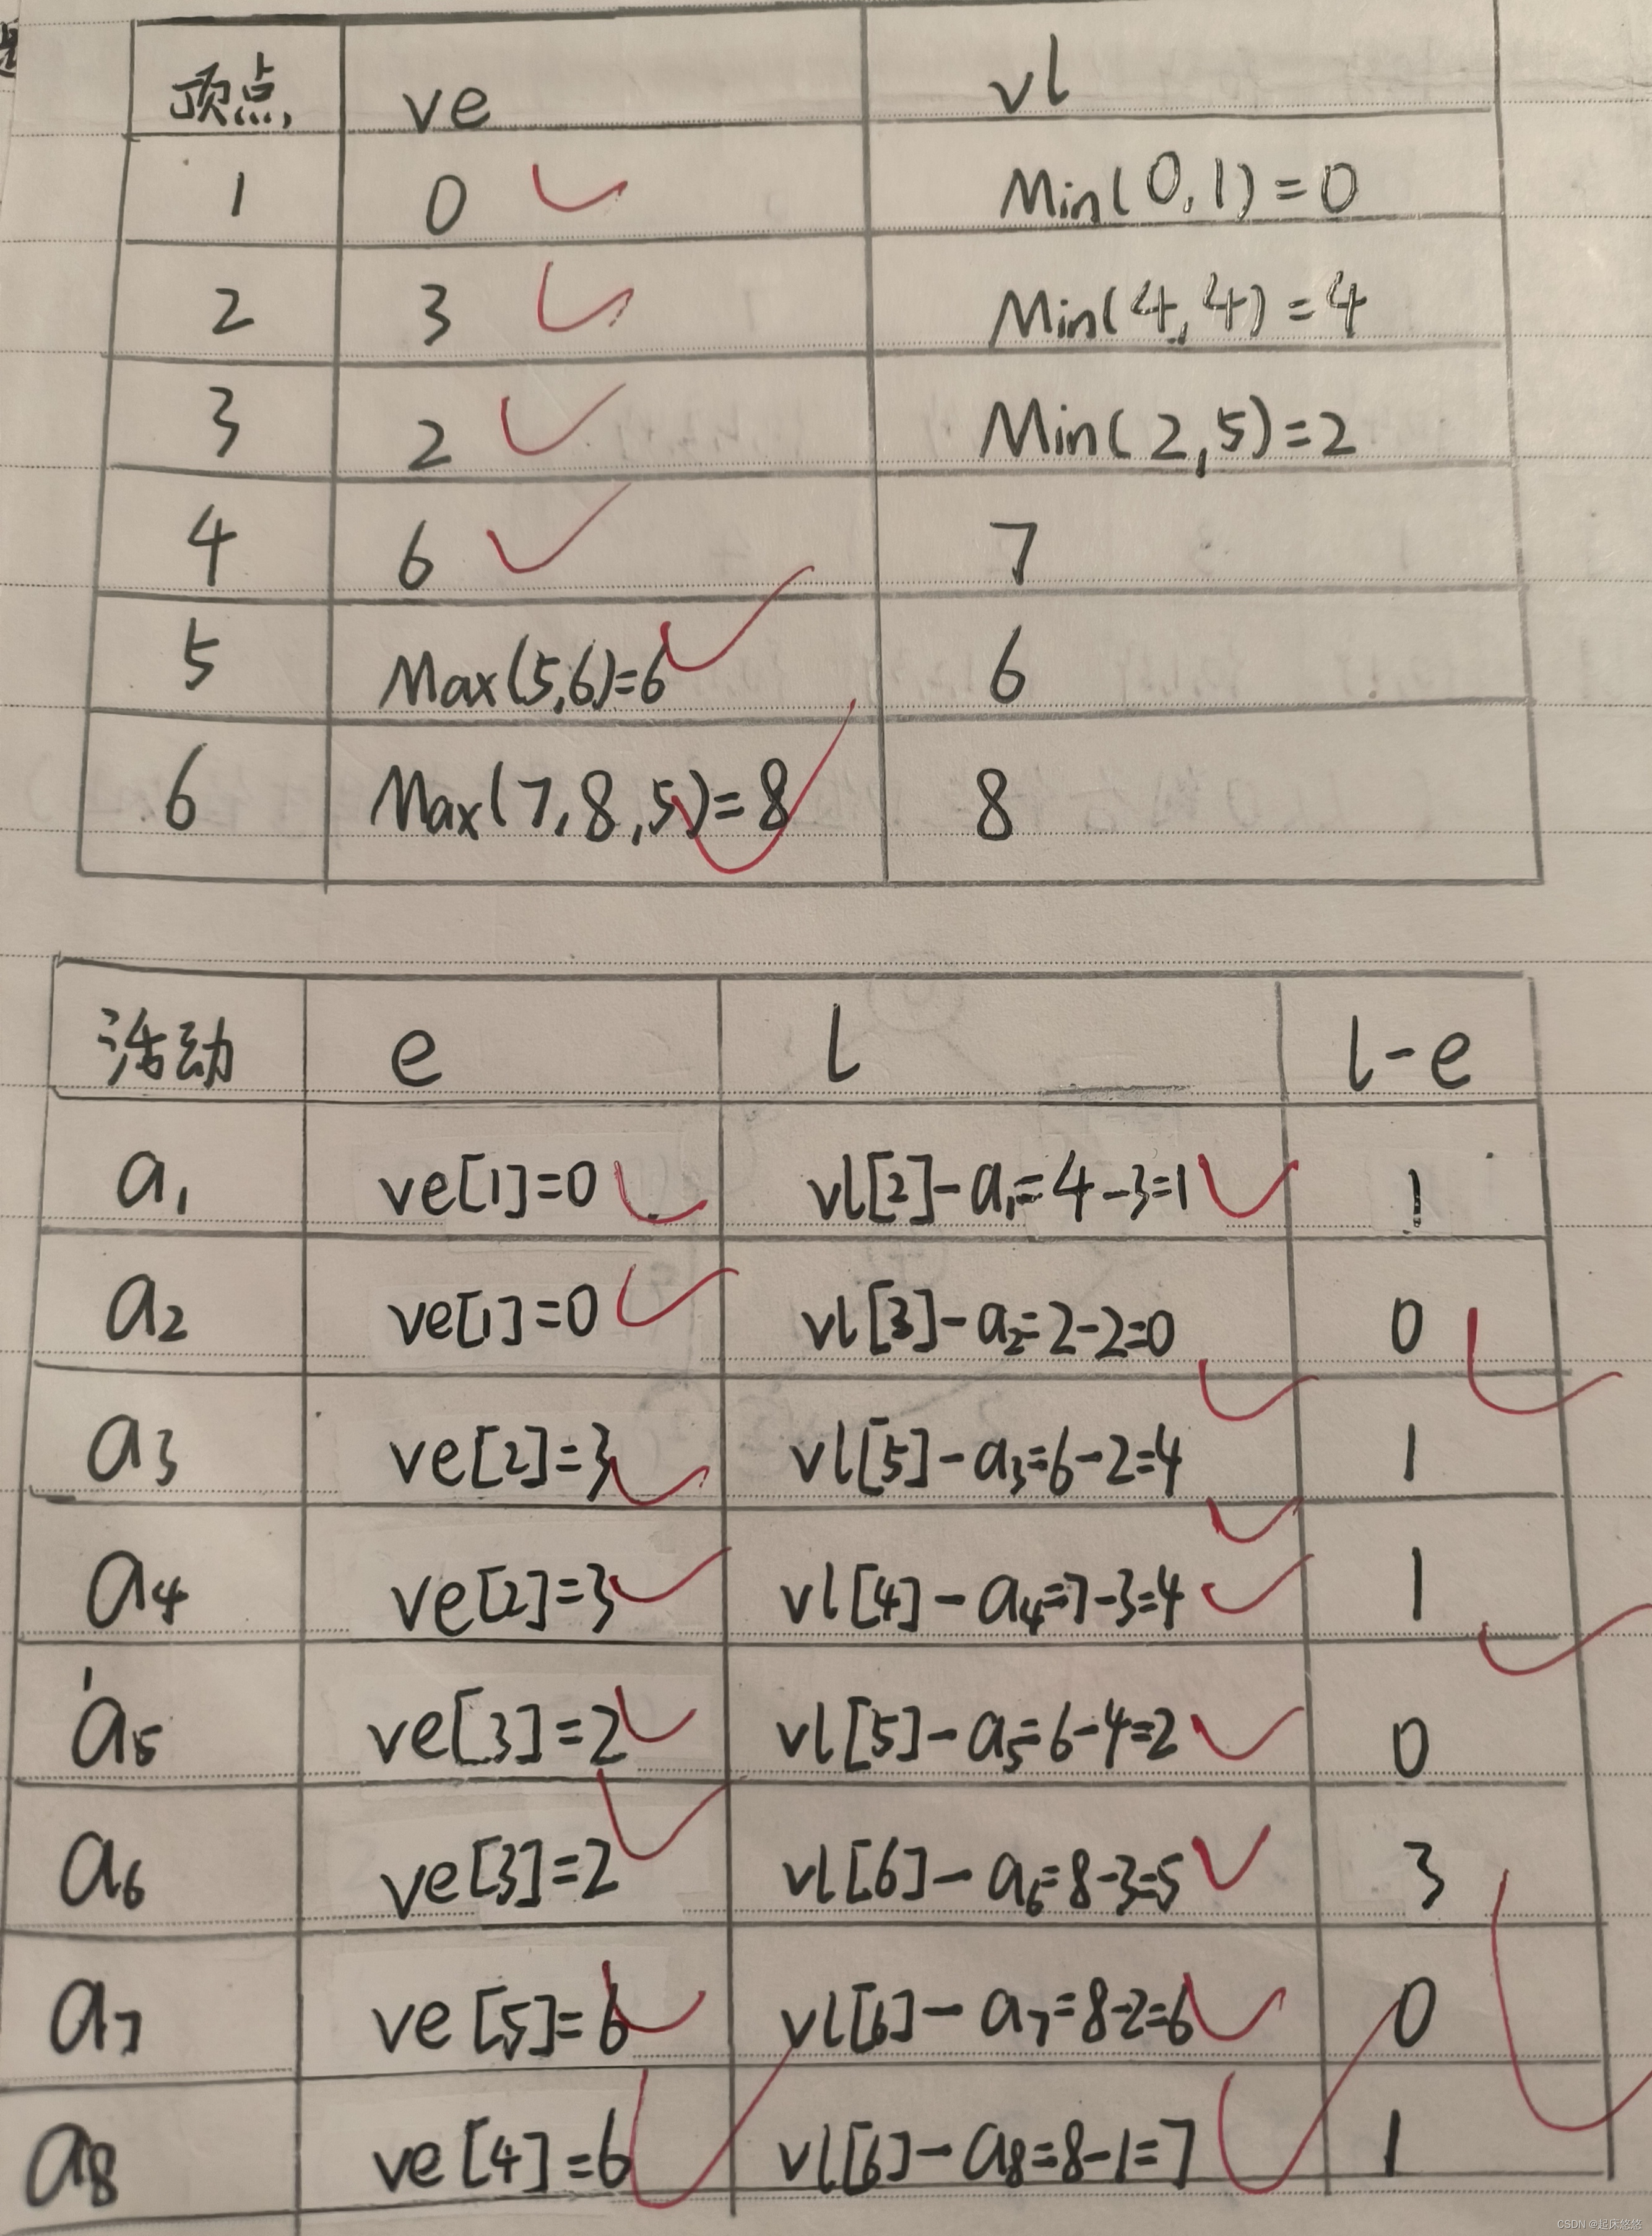 顶点 ve vl
1 0 Min(0,1)=0
2 3 Min(4,4)=4
3 2 Min(2,5)=2
4 6 7
5 Max(5,6)=6 6
6 Max(7,8,5)=8 8
活动 e l l-e
a1 ve[1]=0 vl[2]-a1=4-3=1 1
a2 ve[1]=0 vl[3]-a2=2-2=0 0
a3 ve[2]=3 vl[5]-a3=6-2=4 1
a4 ve[2]=3 vl[4]-a4=7-3=4 1
a5 ve[3]=2 vl[5]-a5=6-4=2 0
a6 ve[3]=2 vl[6]-a6=8-3=5 3
a7 ve[5]=6 vl[6]-a7=8-2=6 0
a8 ve[4]=6 vl[6]-a8=8-1=7 1
CSDN @起床悠悠